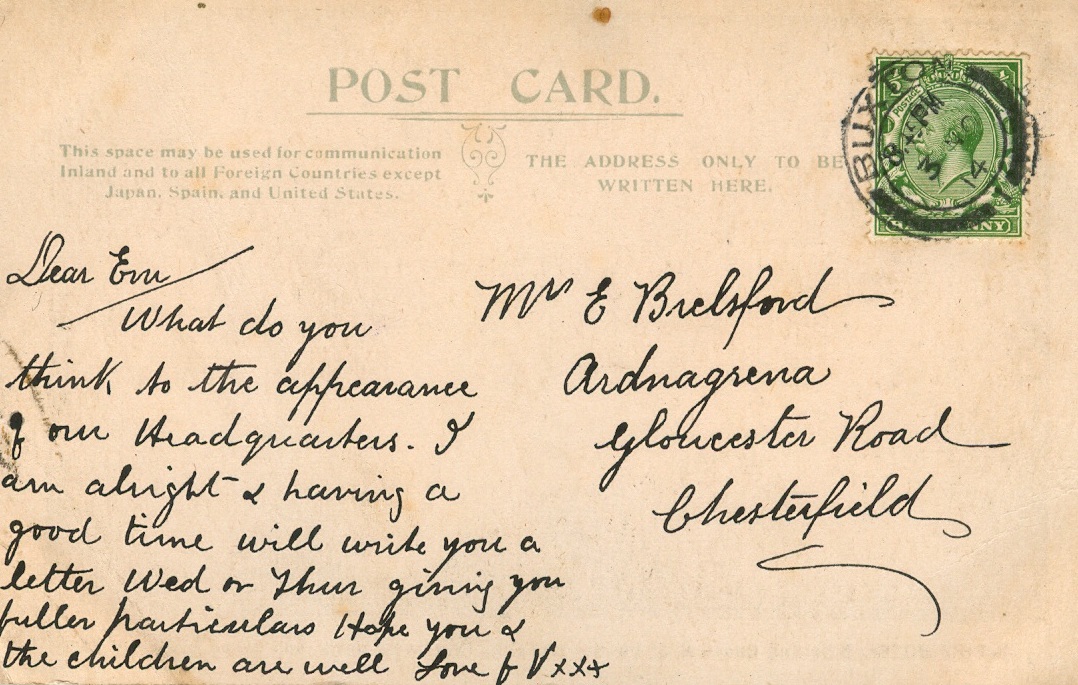 POST CARD.
This space may be used for communication
Inland and to all Foreign Countries except
Japan, Spain, and United States.
THE ADDRESS ONLY TO BE
WRITTEN HERE.
BUXTON
8 PM
14
Dear Em
What do you
think to the appearance
of our Headquarters. I
am alright & having a
good time will write you a
letter Wed or Thur giving you
fuller particulars Hope you &
the children are well Love f V xxx
Mrs E Brelsford
Ardnagrena
Gloucester Road
Chesterfield